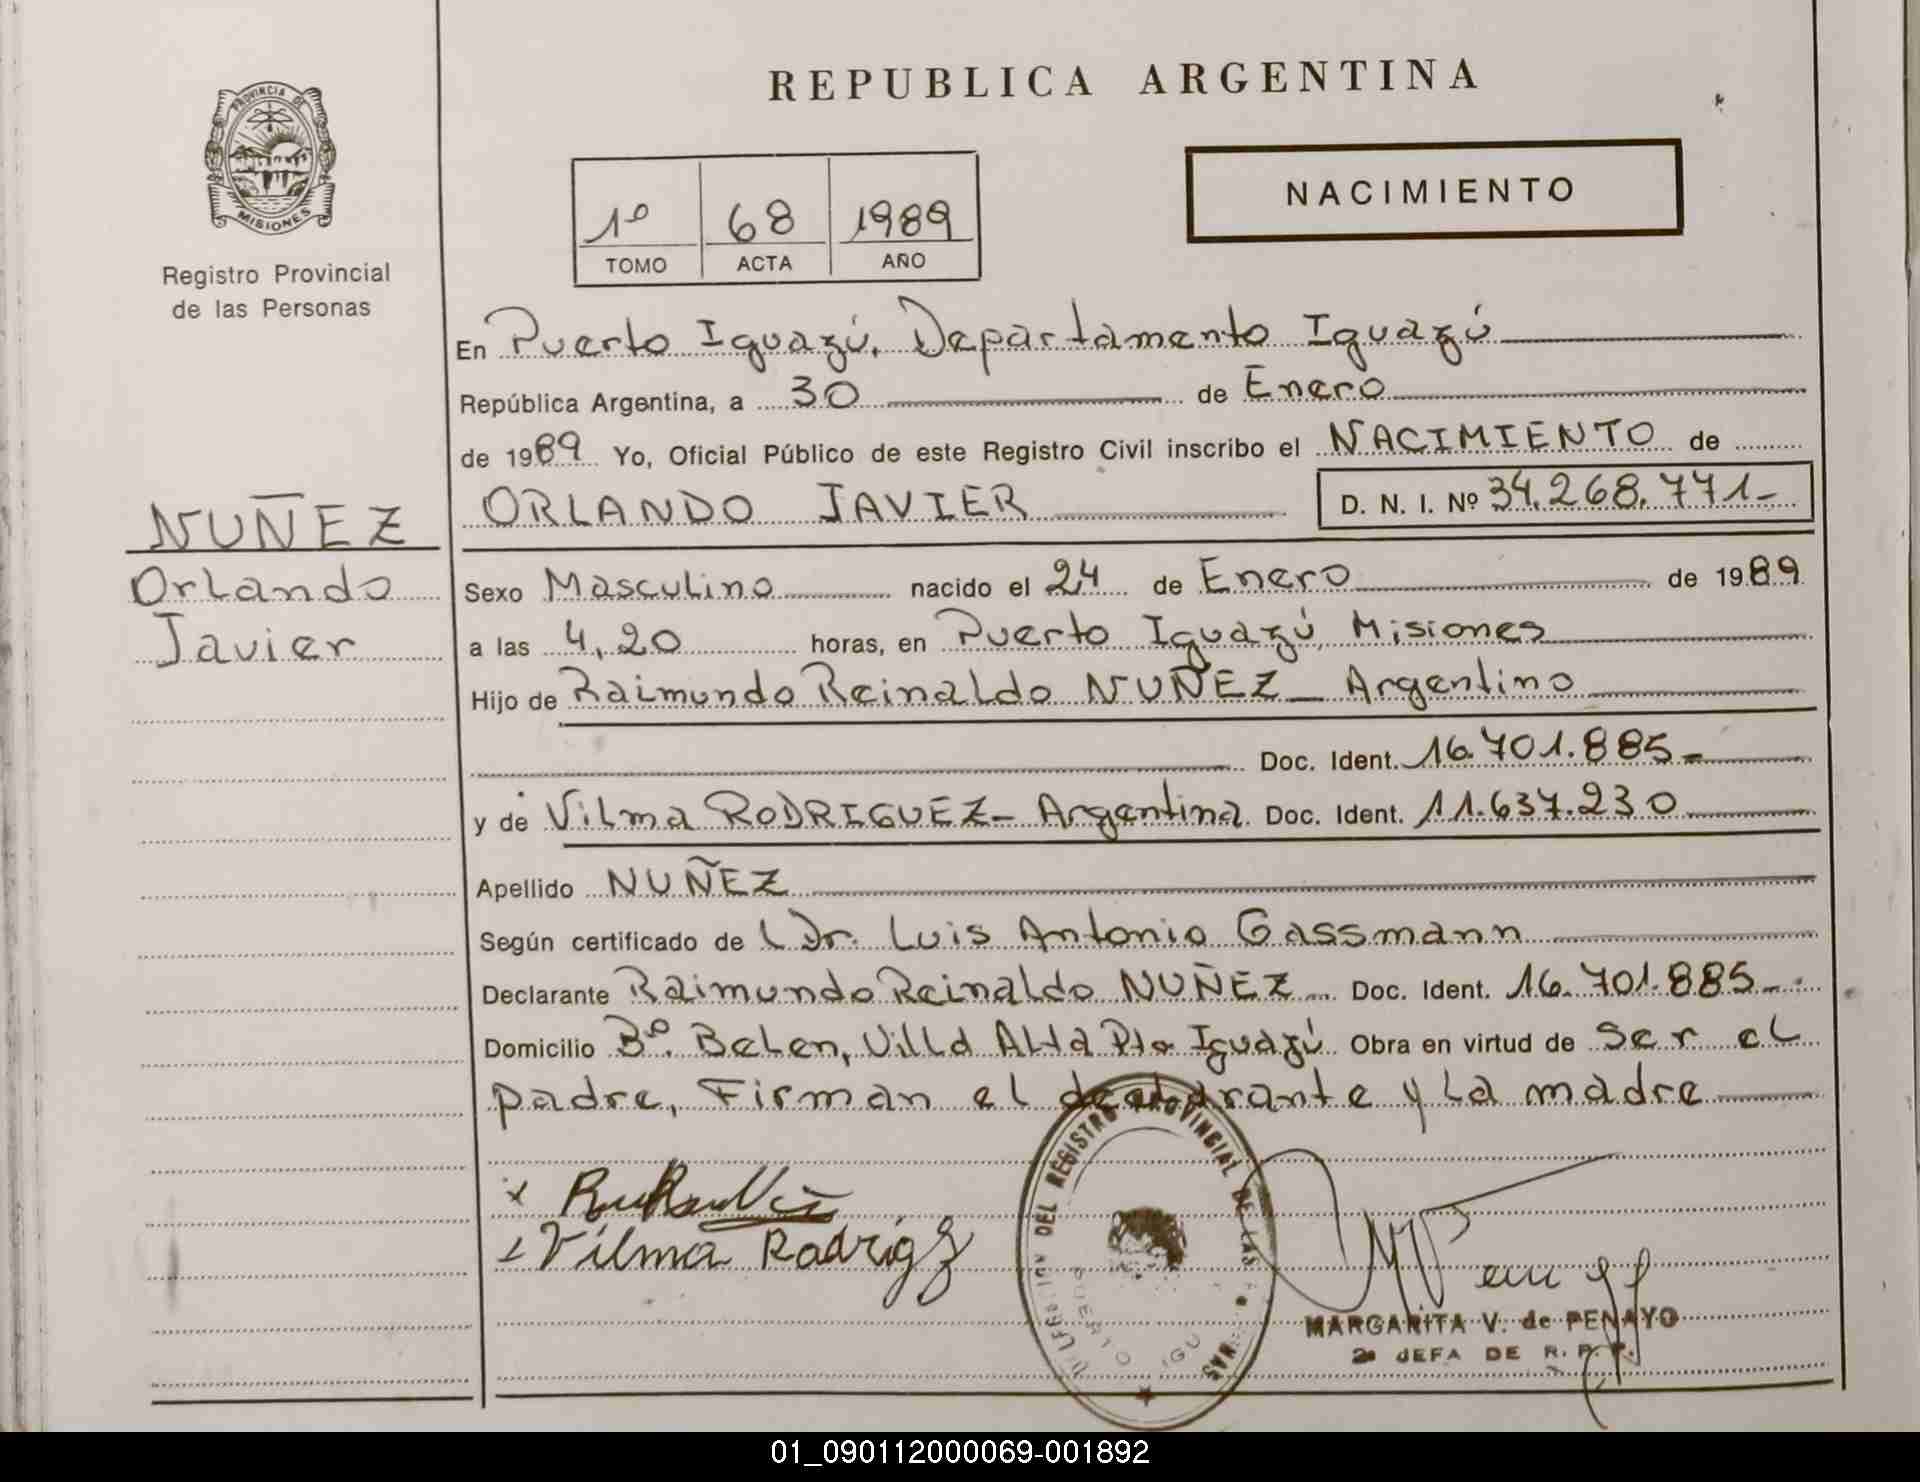 REPUBLICA ARGENTINA
PROVINCIA DE
MISIONES
Registro Provincial
de las Personas
1º 68 1989
TOMO ACTA AÑO
NACIMIENTO
En Puerto Iguazú, Departamento Iguazú
República Argentina, a 30 de Enero
de 1989 Yo, Oficial Público de este Registro Civil inscribo el NACIMIENTO de
NUÑEZ
Orlando
Javier
ORLANDO JAVIER D. N. I. Nº 34.268.771-
Sexo Masculino nacido el 24 de Enero de 1989
a las 4,20 horas, en Puerto Iguazú, Misiones
Hijo de Raimundo Reinaldo NUÑEZ - Argentino
Doc. Ident. 16.701.885-
y de Vilma RODRIGUEZ- Argentina. Doc. Ident. 11.637.230
Apellido NUÑEZ
Según certificado de Dr. Luis Antonio Gassmann
Declarante Raimundo Reinaldo NUÑEZ Doc. Ident. 16.701.885-
Domicilio Bº. Belen, Villa Alta Pto Iguazú Obra en virtud de Ser el
padre, Firman el declarante y La madre
DEL REGISTRO PROVINCIAL DE LAS
PUERTO IGU
Vilma Rodrigz
MARGARITA V. de PENAYO
2ª JEFA DE R. P. P.
01_090112000069-001892